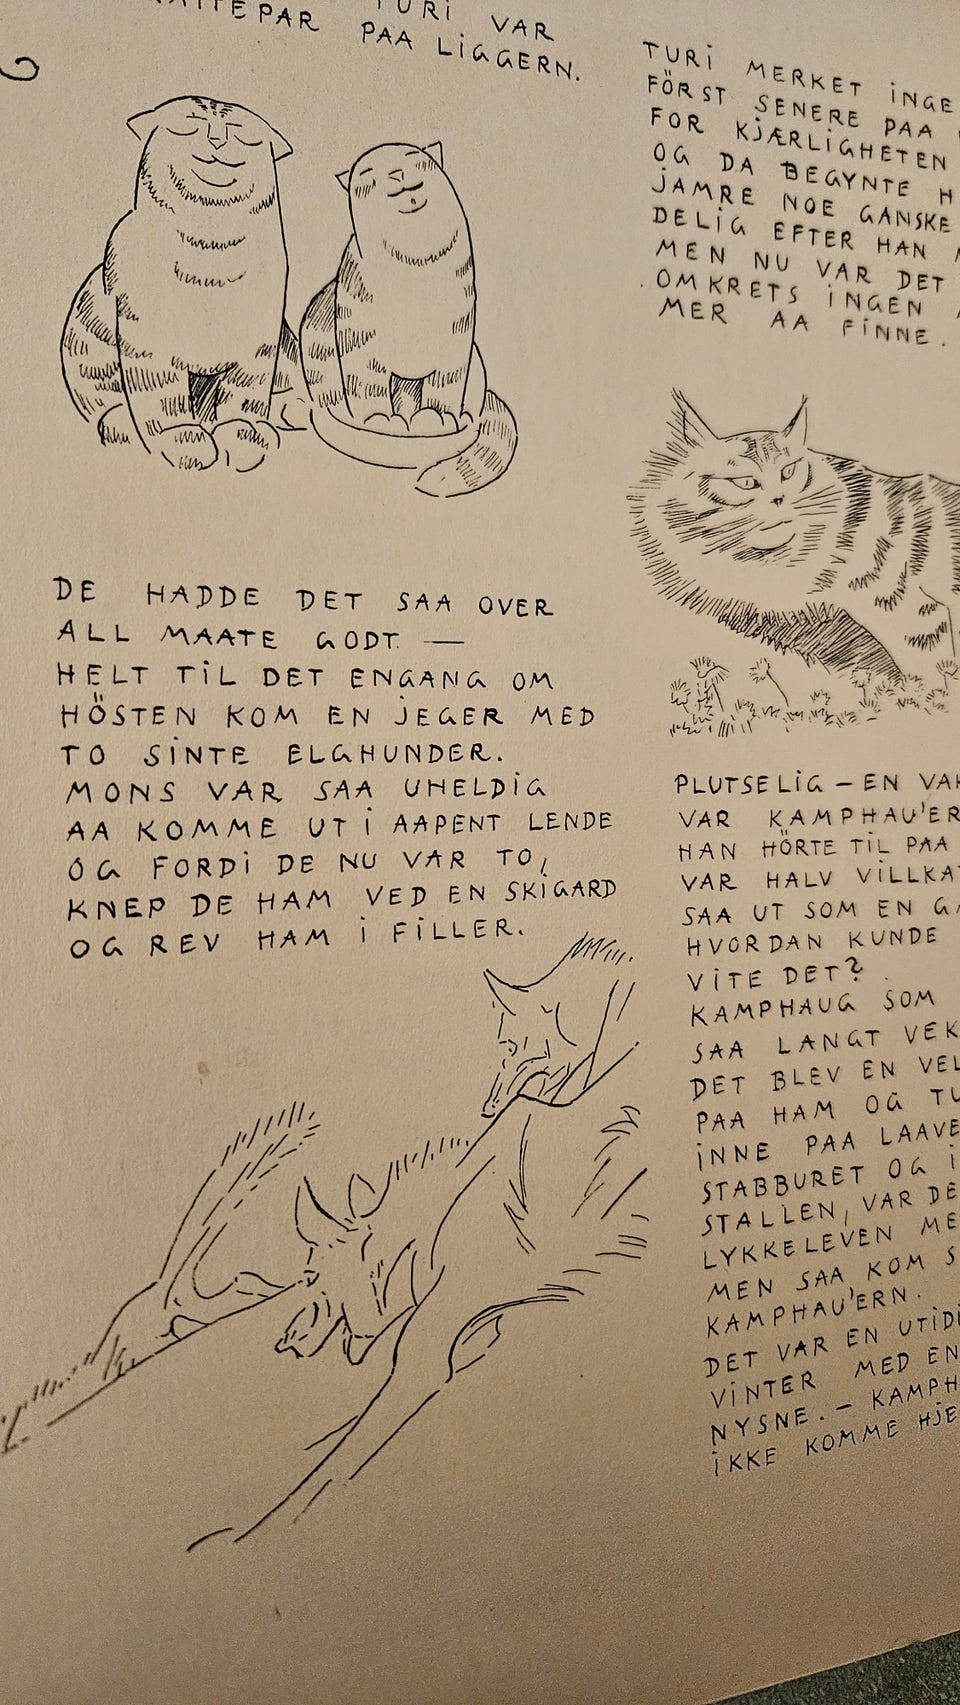 TURi VAR
PAR PAA LiGGERN.
DE HADDE DET SAA OVER
ALL MAATE GODT. —
HELT TiL DET ENGANG OM
HÖSTEN KOM EN JEGER MED
TO SiNTE ELGHUNDER.
MONS VAR SAA UHELDiG
AA KOMME UT i AAPENT LENDE
OG FORDi DE NU VAR TO,
KNEP DE HAM VED EN SKiGARD
OG REV HAM i FiLLER.
TURi MERKET iNGE
FÖRST SENERE PAA
FOR KJÆRLiGHETEN
OG DA BEGYNTE H
JAMRE NOE GANSKE
DELiG EFTER HAN
MEN NU VAR DET
OMKRETS iNGEN
MER AA FiNNE.
PLUTSELiG — EN VAK
VAR KAMPHAU'ER
HAN HÖRTE TiL PAA
VAR HALV ViLLKAT
SAA UT SOM EN GA
HVORDAN KUNDE
ViTE DET?
KAMPHAUG SOM
SAA LANGT VEK
DET BLEV EN VEL
PAA HAM OG TU
iNNE PAA LAAVE
STABBURET OG i
STALLEN, VAR DE
LYKKELEVEN ME
MEN SAA KOM S
KAMPHAU'ERN.
DET VAR EN UTiDi
ViNTER MED EN
NYSNE. — KAMPH
iKKE KOMME HJE